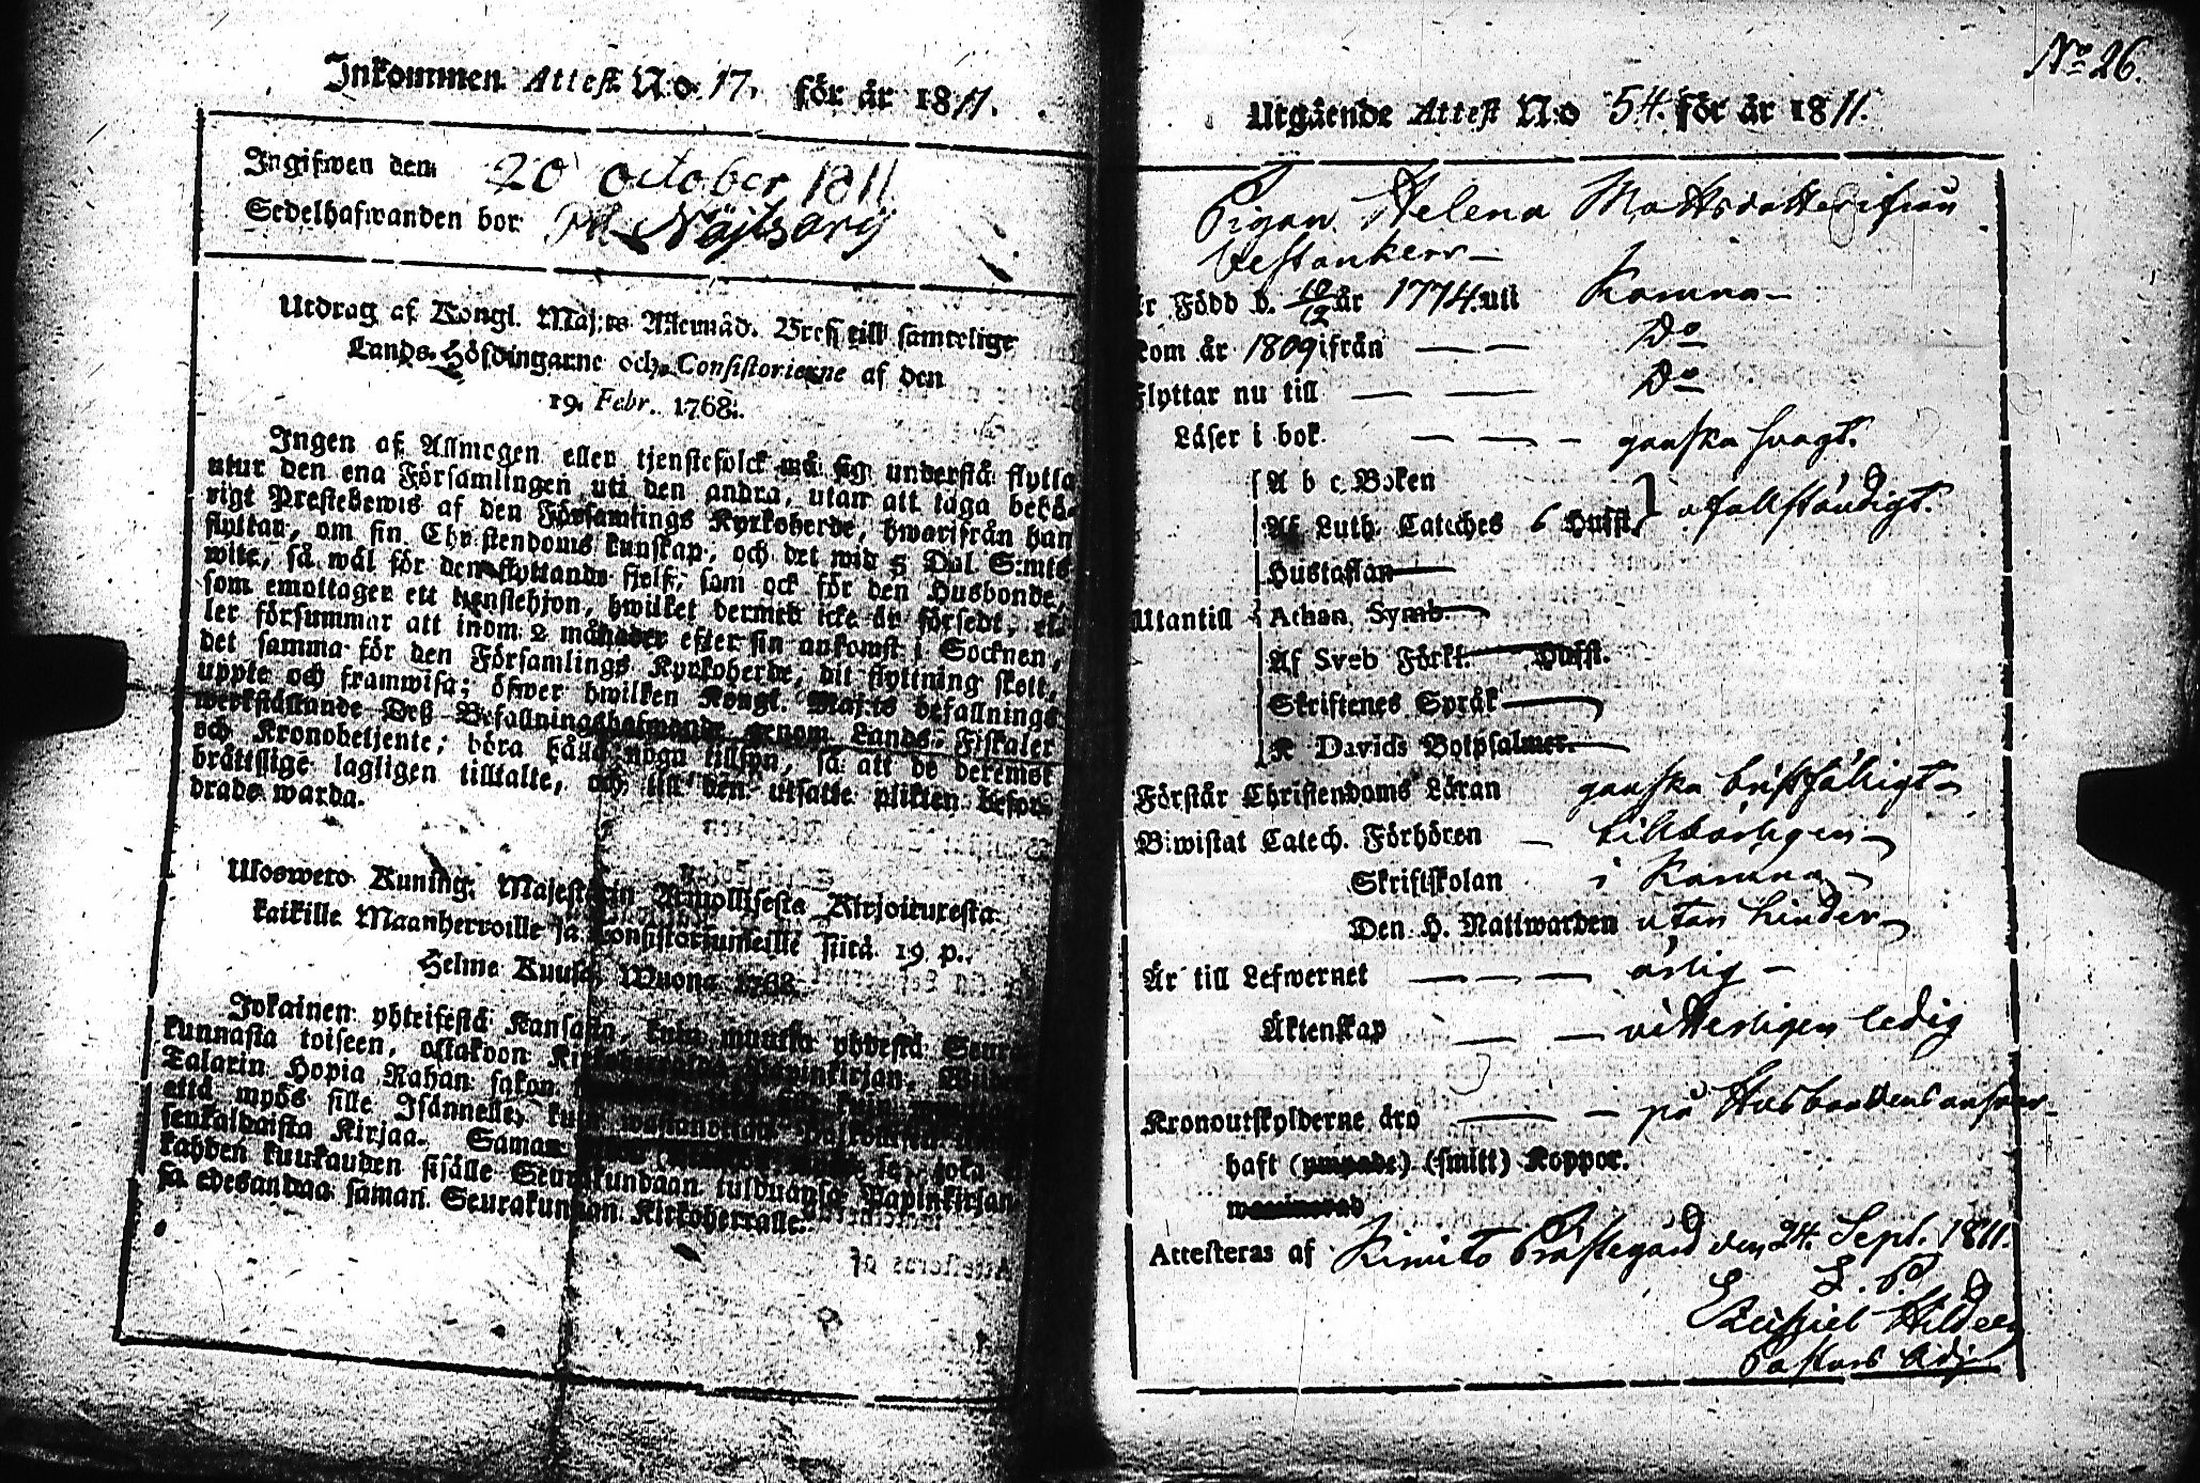 Inkommen Attest No. 17. för år 1811.
Ingifwen den 20 October 1811
Sedelhafwanden bor
Utdrag af Kongl. Maj:ts Allernåd. Bref till samtelige
Lands-Höfdingarne och Consistorierne af den
19. Febr. 1768.
Ingen af Allmogen eller tjenstefolck må sig understå flytta
utur den ena Församlingen uti den andra, utan att taga behö-
rigt Prestebewis af den Församlings Kyrkoherde, hwarifrån han
flyttar, om sin Christendoms kunskap, och det wid 5 Dal. S:mts
wite, så wäl för den flyttande sjelf, som ock för den Husbonde,
som emottager ett tjenstehjon, hwilket dermed icke är försedt, el-
ler försummar att inom 2 månader efter sin ankomst i Socknen,
det samma för den Församlings Kyrkoherde, dit flyttning skett,
uppte och framwisa; öfwer hwilken Kongl. Maj:ts befallnings
werkställande Deß Befallningshafwande genom Lands-Fiskaler
och Kronobetjente, böra hålla noga tillsyn, så att de deremot
bråttslige lagligen tilltalte, och till den utsatte plikten befor-
drade warda.
Ulosweto Kuning. Majestetin Armollisesta Kirjoituxesta
kaikille Maanherroille ja Consistoriumeille siitä 19 p.
Helme Kuusa Wuona 1768.
Jokainen yhteisestä Kansasta, kuin muutta yhdestä Seura-
kunnasta toiseen, ottakoon Kirkoherralda Papinkirjan,
Talarin Hopia Rahan sakon
että myös sille Isännelle, kuin
senkaldaista Kirjaa. Saman se, jota
kahden kuukauden sisälle Seurakundaan tulduansa Papinkirjan
ja edesandaa saman Seurakunnan Kirkoherralle.
No 26.
Utgående Attest N:o 54. för år 1811.
Pigan Helena Mattsdotter ifrån
Vestankerr
är Född d. 10/12 år 1774. uti Karuna
kom år 1809 ifrån — — Do
Flyttar nu till — — Do
Läser i bok — — ganska svagt.
Utantill
A b c Boken
Af Luth. Cateches 6 Hufst. } ofullständigt.
Hustaflan
Athan. Symb.
Af Sveb Förkl. Hufst.
Skriftenes Språk
K Davids Botpsalmer.
Förstår Christendoms Läran ganska bristfälligt
Biwistat Catech. Förhören — tillbörligen
Skriftskolan i Karuna
Den H. Nattwarden utan hinder
Är till Lefwernet — — — ärlig
Äktenskap — — vitterligen ledig
Kronoutskylderne äro — — på Husbondens ansvar
haft (ympade) (smitt) Koppor.
waccinerad
Attesteras af Kimito Prästegård den 24. Sept. 1811.
Pastors Adj.